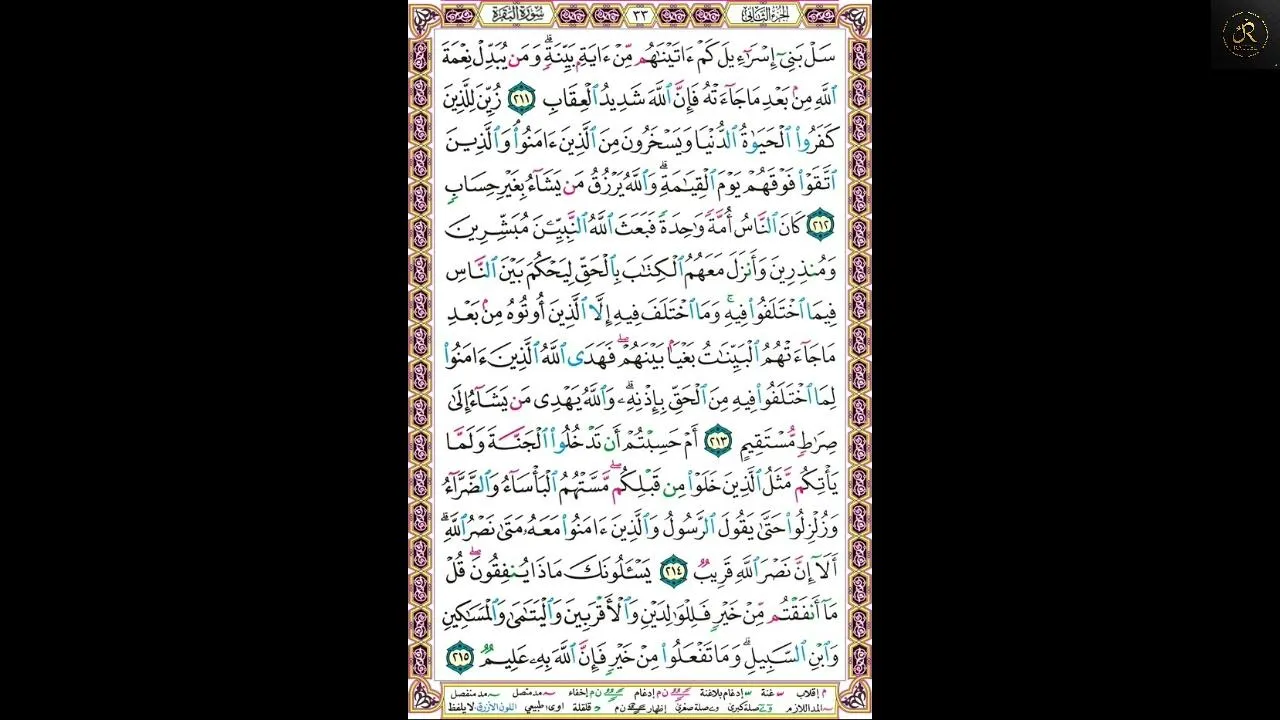 الجزء الثاني
٣٣
سورة البقرة
سَلْ بَنِىٓ إِسْرَٰٓءِيلَ كَمْ ءَاتَيْنَٰهُم مِّنْ ءَايَةٍۭ بَيِّنَةٍۗ وَمَن يُبَدِّلْ نِعْمَةَ
ٱللَّهِ مِنۢ بَعْدِ مَا جَآءَتْهُ فَإِنَّ ٱللَّهَ شَدِيدُ ٱلْعِقَابِ ٢١١ زُيِّنَ لِلَّذِينَ
كَفَرُوا۟ ٱلْحَيَوٰةُ ٱلدُّنْيَا وَيَسْخَرُونَ مِنَ ٱلَّذِينَ ءَامَنُوا۟ۘ وَٱلَّذِينَ
ٱتَّقَوْا۟ فَوْقَهُمْ يَوْمَ ٱلْقِيَٰمَةِۗ وَٱللَّهُ يَرْزُقُ مَن يَشَآءُ بِغَيْرِ حِسَابٍ
٢١٢ كَانَ ٱلنَّاسُ أُمَّةً وَٰحِدَةً فَبَعَثَ ٱللَّهُ ٱلنَّبِيِّۦنَ مُبَشِّرِينَ
وَمُنذِرِينَ وَأَنزَلَ مَعَهُمُ ٱلْكِتَٰبَ بِٱلْحَقِّ لِيَحْكُمَ بَيْنَ ٱلنَّاسِ
فِيمَا ٱخْتَلَفُوا۟ فِيهِۚ وَمَا ٱخْتَلَفَ فِيهِ إِلَّا ٱلَّذِينَ أُوتُوهُ مِنۢ بَعْدِ
مَا جَآءَتْهُمُ ٱلْبَيِّنَٰتُ بَغْيًۢا بَيْنَهُمْۖ فَهَدَى ٱللَّهُ ٱلَّذِينَ ءَامَنُوا۟
لِمَا ٱخْتَلَفُوا۟ فِيهِ مِنَ ٱلْحَقِّ بِإِذْنِهِۦۗ وَٱللَّهُ يَهْدِى مَن يَشَآءُ إِلَىٰ
صِرَٰطٍ مُّسْتَقِيمٍ ٢١٣ أَمْ حَسِبْتُمْ أَن تَدْخُلُوا۟ ٱلْجَنَّةَ وَلَمَّا
يَأْتِكُم مَّثَلُ ٱلَّذِينَ خَلَوْا۟ مِن قَبْلِكُمۖ مَّسَّتْهُمُ ٱلْبَأْسَآءُ وَٱلضَّرَّآءُ
وَزُلْزِلُوا۟ حَتَّىٰ يَقُولَ ٱلرَّسُولُ وَٱلَّذِينَ ءَامَنُوا۟ مَعَهُۥ مَتَىٰ نَصْرُ ٱللَّهِۗ
أَلَآ إِنَّ نَصْرَ ٱللَّهِ قَرِيبٌ ٢١٤ يَسْـَٔلُونَكَ مَاذَا يُنفِقُونَۖ قُلْ
مَآ أَنفَقْتُم مِّنْ خَيْرٍ فَلِلْوَٰلِدَيْنِ وَٱلْأَقْرَبِينَ وَٱلْيَتَٰمَىٰ وَٱلْمَسَٰكِينِ
وَٱبْنِ ٱلسَّبِيلِۗ وَمَا تَفْعَلُوا۟ مِنْ خَيْرٍ فَإِنَّ ٱللَّهَ بِهِۦ عَلِيمٌ ٢١٥
م إقلاب غنة إدغام بلاغنة ن م إدغام ن م إخفاء مد متصل مد منفصل
المد اللازم صلة كبرى صلة صغرى إظهار ن م قلقلة اوى طبيعي اللون الأزرق لا يلفظ